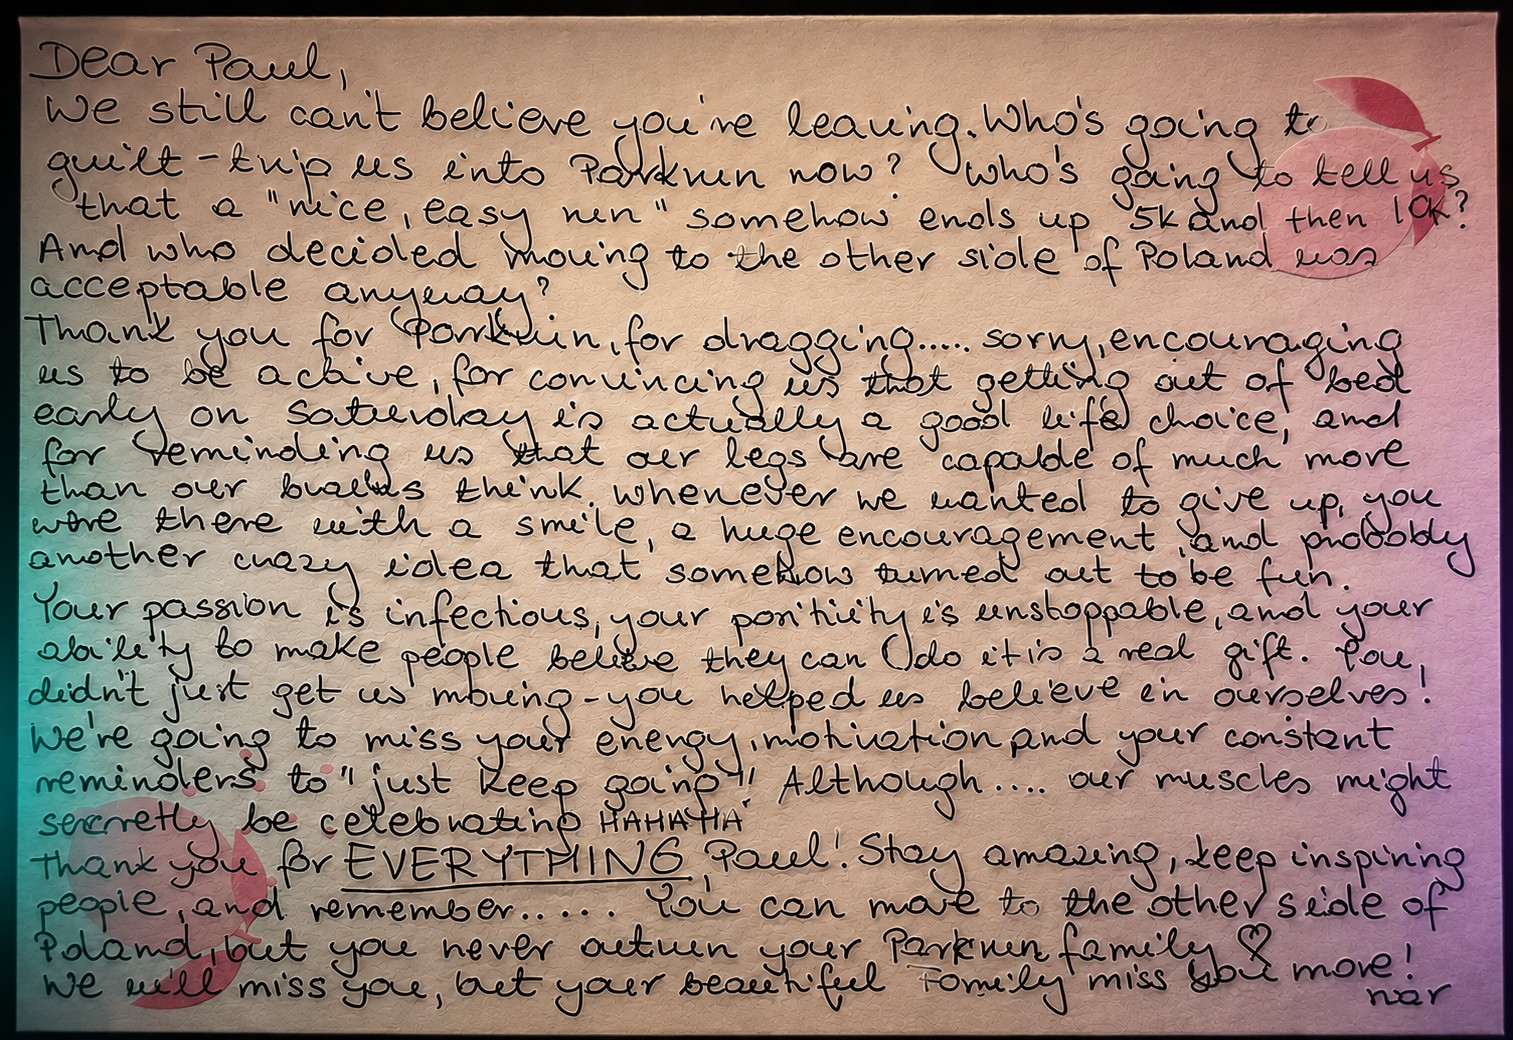 Dear Paul,
We still can't believe you're leaving. Who's going to
guilt-trip us into Parkrun now? Who's going to tell us
that a "nice, easy run" somehow ends up 5k and then 10k?
And who decided moving to the other side of Poland was
acceptable anyway?
Thank you for Parkrun, for dragging..... sorry, encouraging
us to be active, for convincing us that getting out of bed
early on Saturday is actually a good life choice, and
for reminding us that our legs are capable of much more
than our brains think. Whenever we wanted to give up, you
were there with a smile, a huge encouragement, and probably
another crazy idea that somehow turned out to be fun.
Your passion is infectious, your positivity is unstoppable, and your
ability to make people believe they can do it is a real gift. You,
didn't just get us moving - you helped us believe in ourselves!
We're going to miss your energy, motivation and your constant
reminders to "just keep going"! Although.... our muscles might
secretly be celebrating HAHAHA
Thank you for EVERYTHING, Paul! Stay amazing, keep inspiring
people, and remember..... You can move to the other side of
Poland, but you never outrun your Parkrun family ♡
We will miss you, but your beautiful Family miss you more!